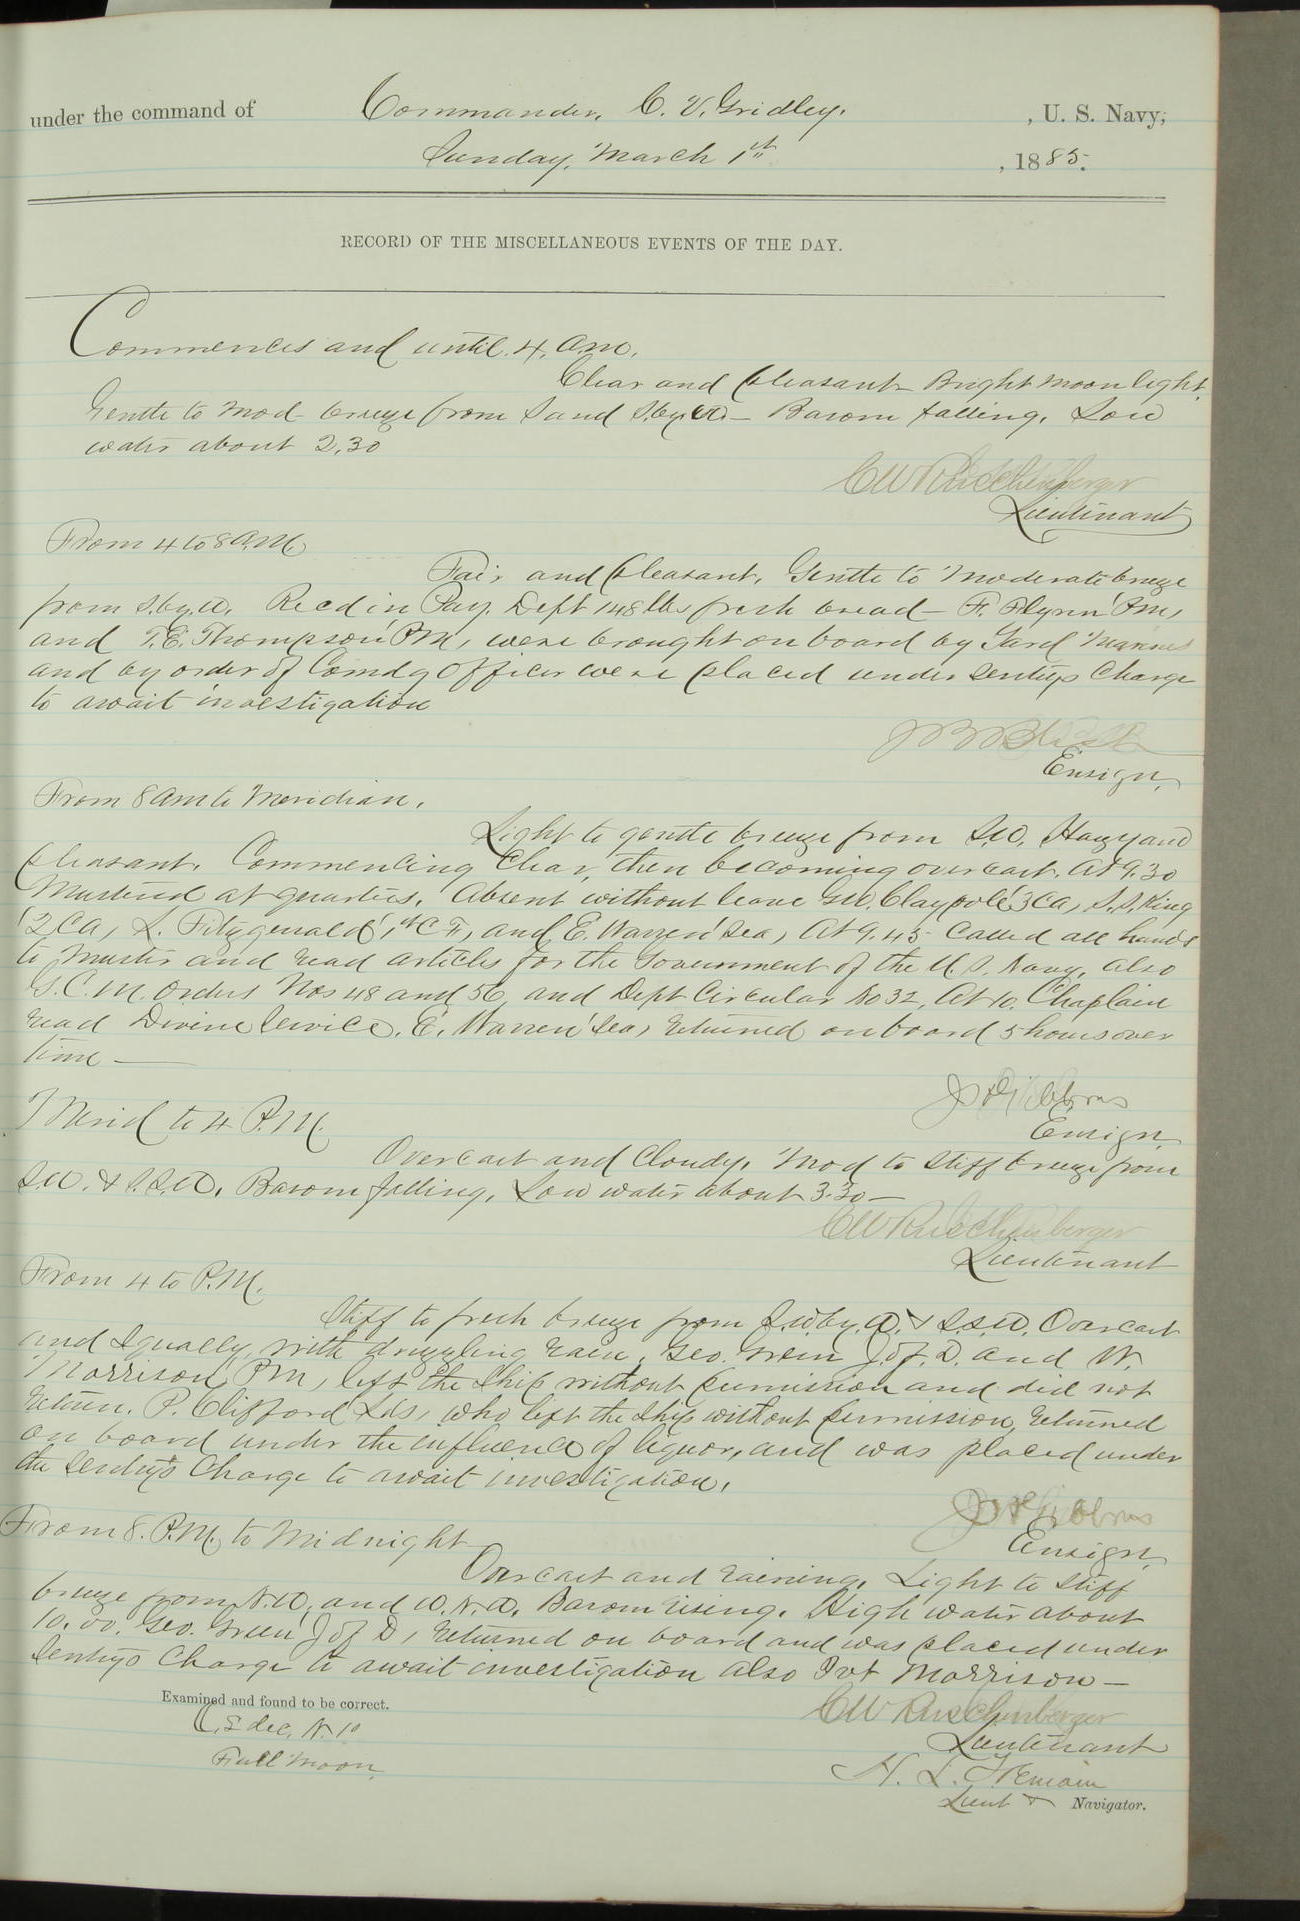 under the command of Commander, C. V. Gridley. , U. S. Navy,
Sunday, March 1st , 1885.
RECORD OF THE MISCELLANEOUS EVENTS OF THE DAY.
Commences and until 4, a.m.
Clear and pleasant Bright moon light.
Gentle to Mod breeze from S and S.by.W. Barom falling. Low
water about 2.30
C W Ruschenberger
Lieutenant
From 4 to 8 A.M.
Fair and pleasant. Gentle to moderate breeze
from S.by.W. Recd in Pay. Dept 148 lbs fresh bread - F. Flynn P.M,
and T.E. Thompson P.M, were brought on board by Yard Marines
and by order of Comdg Officer were placed under sentrys Charge
to await investigation
Ensign,
From 8 am to Meridian.
Light to gentle breeze from S.W. Hazy and
pleasant. Commencing Clear, then becoming overcast. At 9.30
Mustered at quarters. Absent without leave Geo. Claypole 3 Ca, S.S. King
2 Ca, L. Fitzgerald 1st C F, and E. Warren Sea, At 9.45 Called all hands
to muster and read articles for the Government of the U.S. Navy, also
G.C.M. Orders Nos 48 and 56, and Dept Circular No 32, At 10. Chaplain
read Divine Service. E. Warren Sea, returned on board 5 hours over
time
J H Gibbons
Ensign.
Merid to 4 P.M.
Overcast and Cloudy. Mod to stiff breeze from
S.W. & S.S.W. Barom falling. Low water about 3.30 -
C W Ruschenberger
Lieutenant
From 4 to P.M.
Stiff to fresh breeze from S.W.by.W. & S.S.W. Overcast
and Squally with drizzling rain. Geo. Green J. of. D. and W.
Morrison P.M, left the Ship without permission and did not
return. P. Clifford Lds, who left the Ship without permission, returned
on board under the influence of liquor, and was placed under
the sentry's Charge to await investigation.
J H Gibbons
Ensign.
From 8. P.M. to Midnight
Overcast and raining. Light to stiff
breeze from N.W. and W.N.W. Barom rising. High water about
10.00. Geo. Green J of D, returned on board and was placed under
Sentrys Charge to await investigation also Pvt Morrison -
Examined and found to be correct.
C W Ruschenberger
dec. N. 10
Lieutenant
Full Moon
H. L. Tremain
Lieut & Navigator.